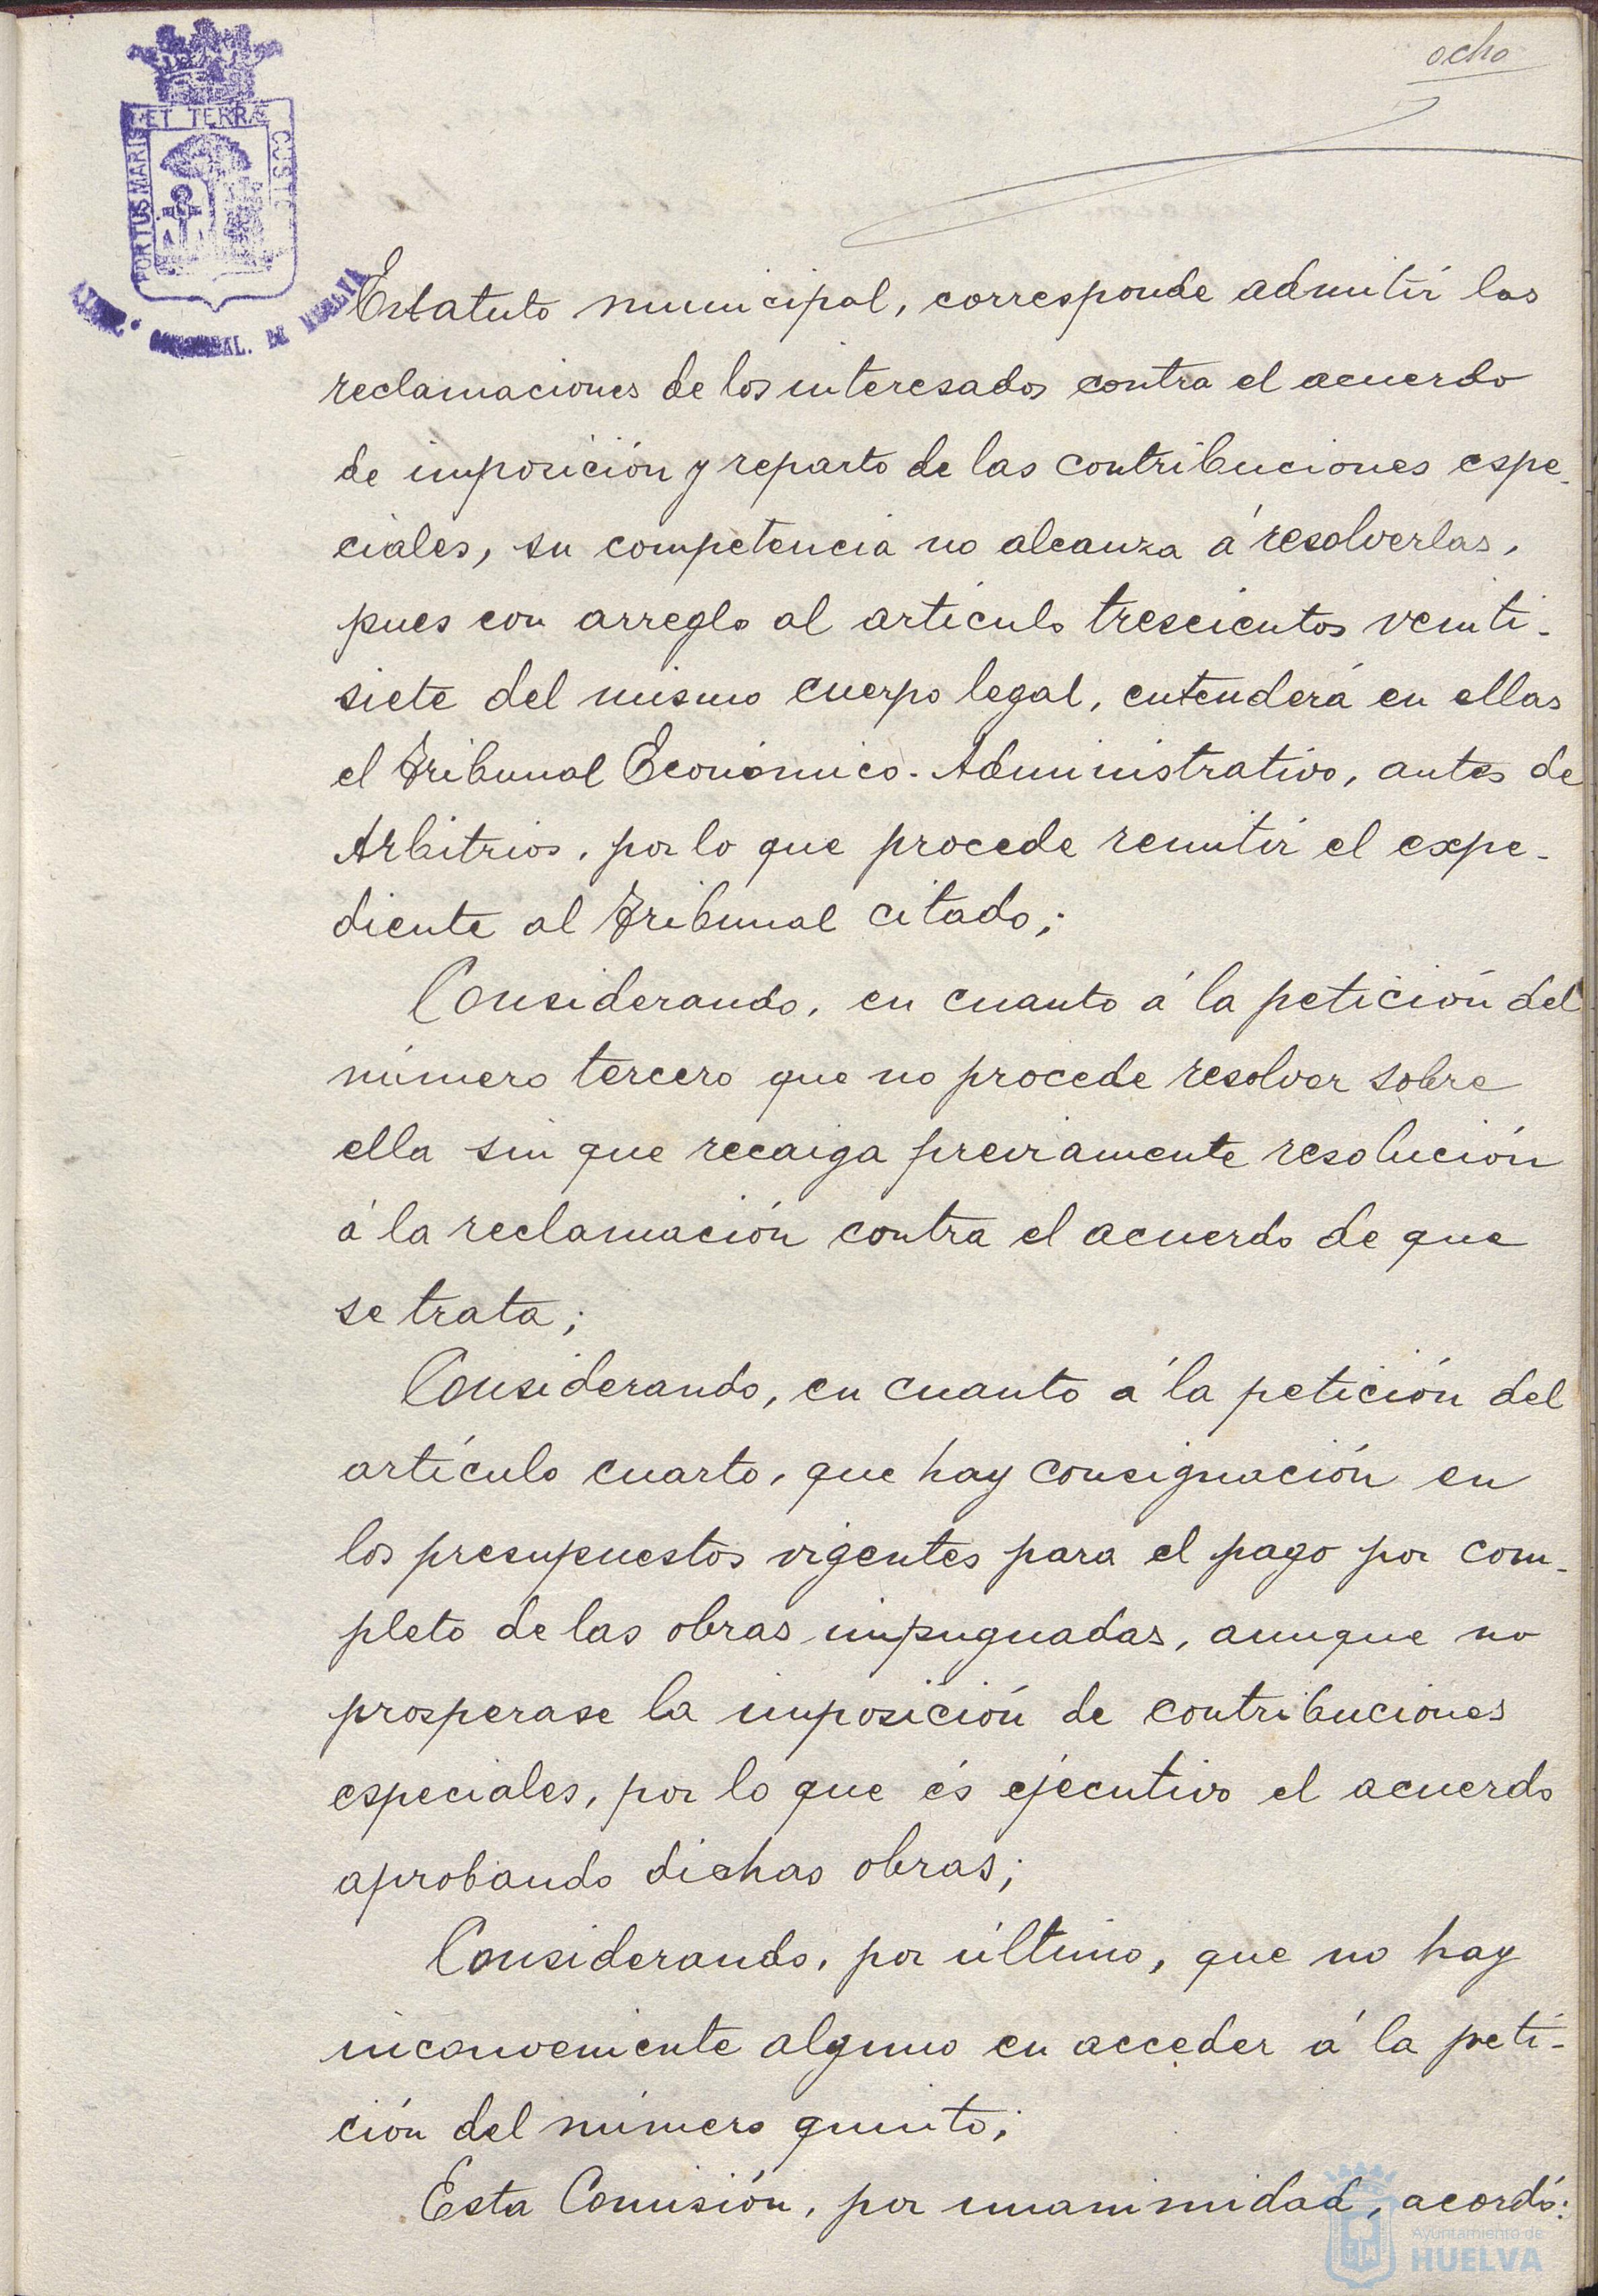 ocho
ET TERRÆ
PORTUS MARIS
CUSTO
DE HUELVA
Estatuto municipal, corresponde admitir las
reclamaciones de los interesados contra el acuerdo
de imposición y reparto de las contribuciones espe-
ciales, su competencia no alcanza á resolverlas,
pues con arreglo al artículo trescientos veinti-
siete del mismo cuerpo legal, entenderá en ellas
el Tribunal Económico-Administrativo, antes de
Arbitrios, por lo que procede remitir el expe-
diente al Tribunal citado;
Considerando, en cuanto á la petición del
número tercero que no procede resolver sobre
ella sin que recaiga previamente resolución
á la reclamación contra el acuerdo de que
se trata;
Considerando, en cuanto á la petición del
artículo cuarto, que hay consignación en
los presupuestos vigentes para el pago por com-
pleto de las obras impugnadas, aunque no
prosperase la imposición de contribuciones
especiales, por lo que és ejécutivo el acuerdo
aprobando dichas obras;
Considerando, por último, que no hay
inconveniente alguno en acceder á la peti-
ción del número quinto;
Esta Comisión, por unanimidad, acordó:
Ayuntamiento de
HUELVA